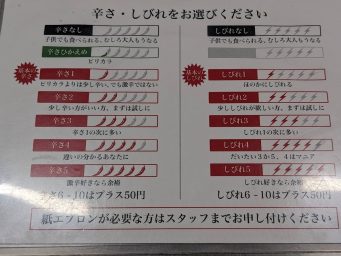 辛さ・しびれをお選びください
辛さなし
子供でも食べられる、むしろ大人もうなる
辛さひかえめ
ピリカラ
基本の辛さ
辛さ1
ピリカラよりは少し辛い、でも激辛ではない
辛さ2
少し辛い方がいい方、まずは試しに
辛さ3
辛さ1の次に多い
辛さ4
違いの分かるあなたに
辛さ5
激辛好きなら余裕
辛さ6-10はプラス50円
しびれなし
子供でも食べられる、むしろ大人もうなる
基本のしびれ
しびれ1
ほのかにしびれる
しびれ2
少ししびれが欲しい方、まずは試しに
しびれ3
しびれ1の次に多い
しびれ4
だいたい3か5、4はマニア
しびれ5
しびれ好きなら余裕
しびれ6-10はプラス50円
紙エプロンが必要な方はスタッフまでお申し付けください